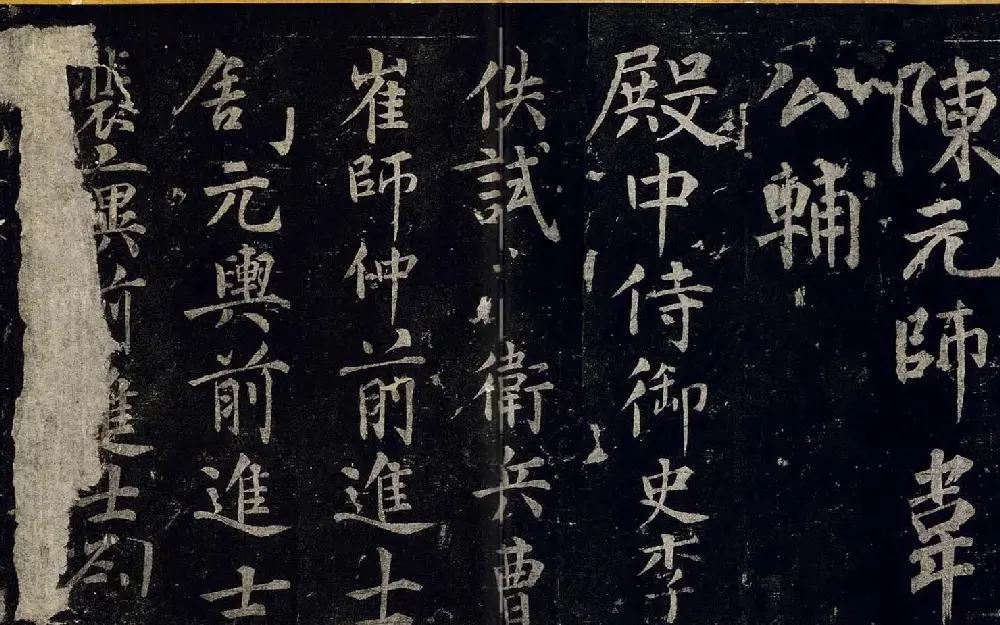 陳元師 韋
公輔
殿中侍御史李
佚試 衛兵曹
崔師仲前進士
舍元輿前進士
裴 異前進士劉